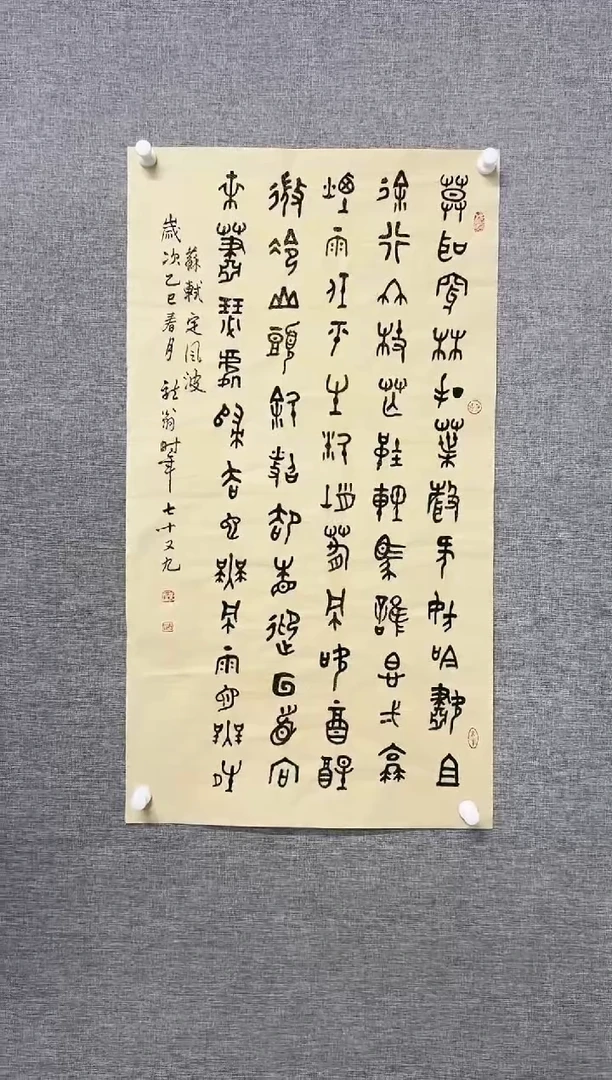 莫听穿林打葉聲何妨吟嘯且
徐行竹杖芒鞋輕馬誰怕弌蓑
煙雨任平生料峭春風吹酒醒
微冷山頭斜照却相迎回首向
來蕭瑟處歸去也無風雨也無晴
蘇軾定風波
歲次乙巳春月 翁时年七十又九